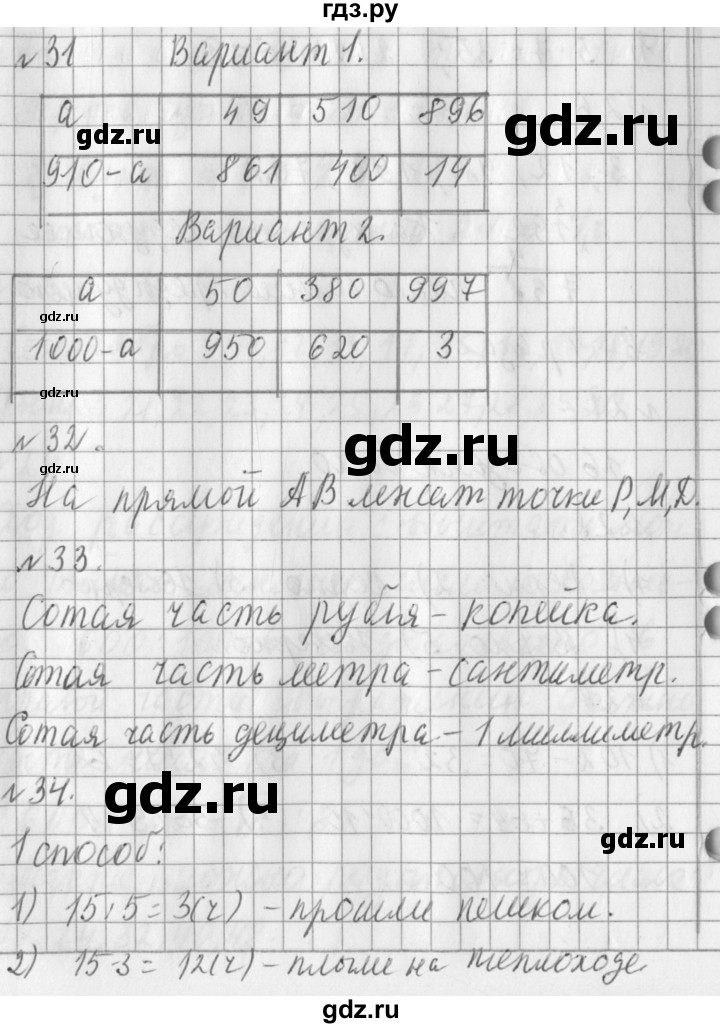 гдз.ру
№31 Вариант 1.
а 49 510 896
gdz.ru
gdz.ru
910-а 861 400 14
Вариант 2.
а 50 380 997
gdz.ru
1000-а 950 620 3
gdz.ru
№32.
gdz.ru
gdz.ru
На прямой АВ лежат точки Р, М, Д.
№33.
Сотая часть рубля - копейка.
Сотая часть метра - сантиметр.
Сотая часть дециметра - 1 миллиметр.
№34.
gdz.ru
gdz.ru
1 способ:
1) 15:5=3(ч) - прошли пешком.
2) 15-3=12(ч) - плыли на теплоходе.
gdz.ru